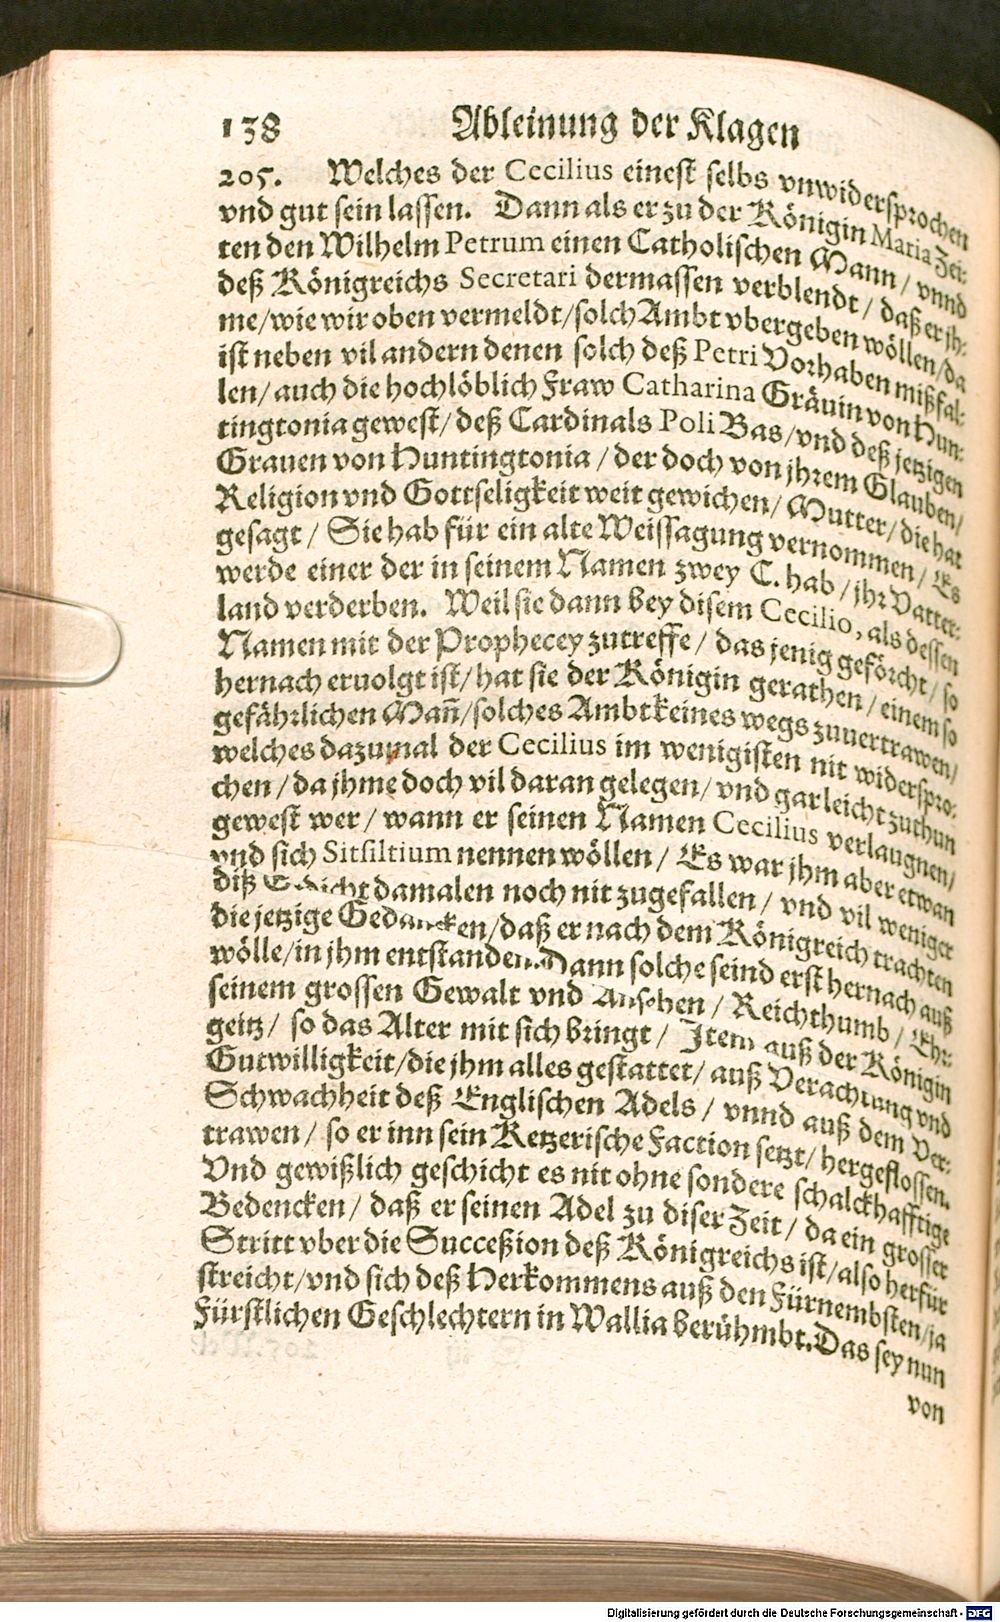 138 Ableinung der Klagen
205. Welches der Cecilius einest selbs vnwidersprochen
vnd gut sein lassen. Dann als er zu der Königin Maria Zei-
ten den Wilhelm Petrum einen Catholischen Mann / vnnd
deß Königreichs Secretari dermassen verblendt / daß er jh-
me/wie wir oben vermeldt/solch Ambt vbergeben wöllen/da
ist neben vil andern denen solch deß Petri Vorhaben mißfal-
len/ auch die hochlöblich Fraw Catharina Gräuin von Hun-
tingtonia gewest/ deß Cardinals Poli Bas/vnd deß jetzigen
Grauen von Huntingtonia / der doch von jhrem Glauben/
Religion vnd Gottseligkeit weit gewichen/ Mutter/ die hat
gesagt / Sie hab für ein alte Weissagung vernommen / Es
werde einer der in seinem Namen zwey C. hab / jhr Vatter-
land verderben. Weil sie dann bey disem Cecilio, als dessen
Namen mit der Prophecey zutreffe / das jenig geförcht / so
hernach eruolgt ist/ hat sie der Königin gerathen / einem so
gefährlichen Mañ/solches Ambt keines wegs zuuertrawen/
welches dazumal der Cecilius im wenigisten nit widerspro-
chen / da jhme doch vil daran gelegen/ vnd gar leicht zuthun
gewest wer / wann er seinen Namen Cecilius verlaugnen/
vnd sich Sitsiltium nennen wöllen / Es war jhm aber etwan
diß Gedicht damalen noch nit zugefallen / vnd vil weniger
die jetzige Gedancken/daß er nach dem Königreich trachten
wölle/in jhm entstanden. Dann solche seind erst hernach auß
seinem grossen Gewalt vnd Ansehen / Reichthumb / Ehr-
geitz/ so das Alter mit sich bringt / Item auß der Königin
Gutwilligkeit/die jhm alles gestattet/ auß Verachtung vnd
Schwachheit deß Englischen Adels / vnnd auß dem Ver-
trawen/ so er inn sein Ketzerische Faction setzt/ hergeflossen.
Vnd gewißlich geschicht es nit ohne sondere schalckhafftige
Bedencken/ daß er seinen Adel zu diser Zeit / da ein grosser
Stritt vber die Succeßion deß Königreichs ist/also herfür
streicht/vnd sich deß Herkommens auß den Fürnembsten/ja
Fürstlichen Geschlechtern in Wallia berühmbt. Das sey nun
von
Digitalisierung gefördert durch die Deutsche Forschungsgemeinschaft - DFG